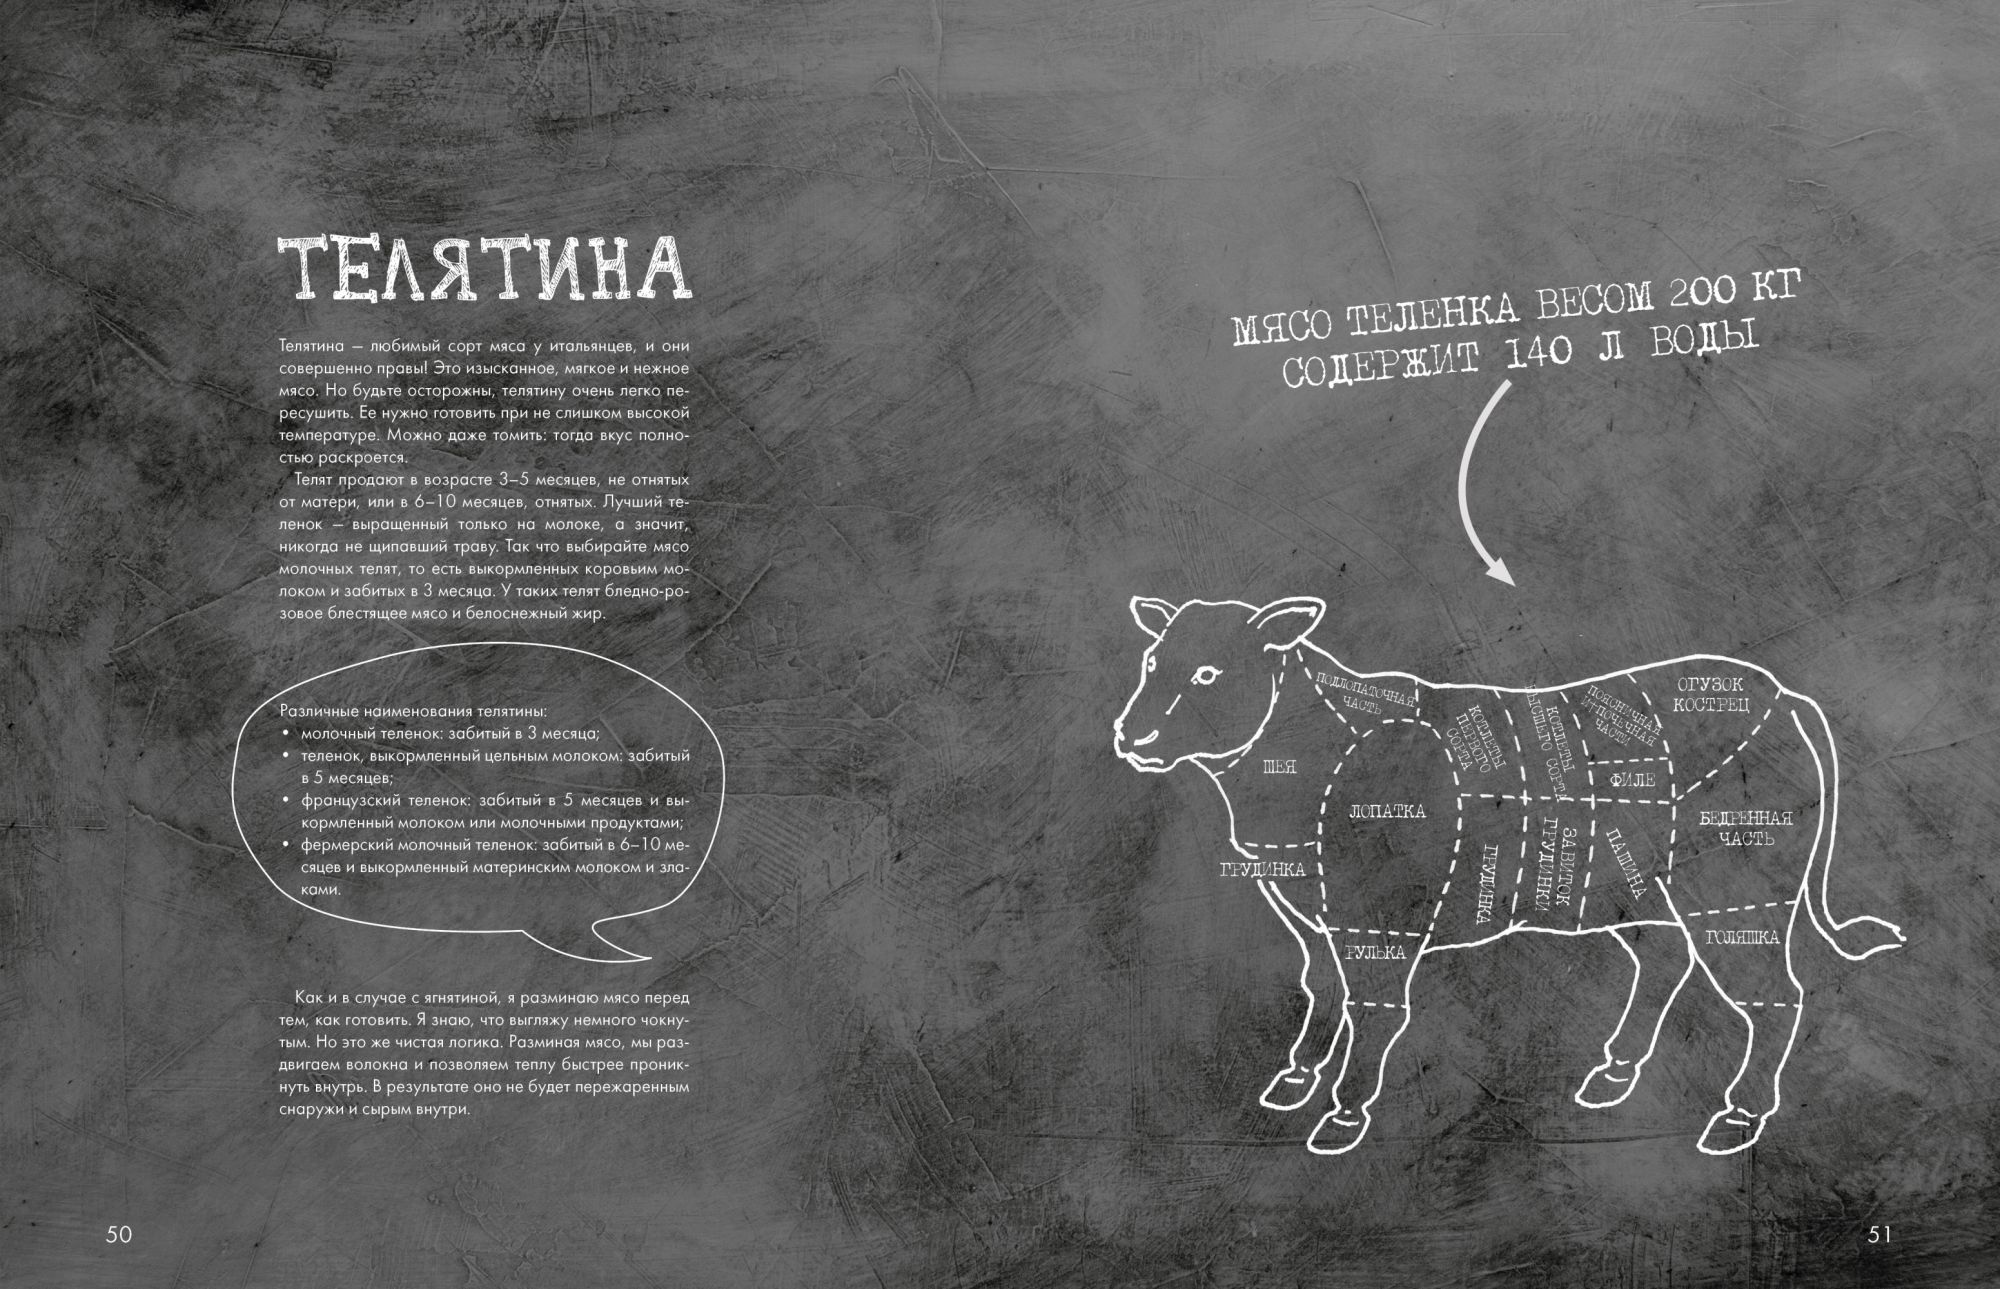 ТЕЛЯТИНА
Телятина — любимый сорт мяса у итальянцев, и они
совершенно правы! Это изысканное, мягкое и нежное
мясо. Но будьте осторожны, телятину очень легко пе-
ресушить. Ее нужно готовить при не слишком высокой
температуре. Можно даже томить: тогда вкус полно-
стью раскроется.
Телят продают в возрасте 3–5 месяцев, не отнятых
от матери, или в 6–10 месяцев, отнятых. Лучший те-
ленок — выращенный только на молоке, а значит,
никогда не щипавший траву. Так что выбирайте мясо
молочных телят, то есть выкормленных коровьим мо-
локом и забитых в 3 месяца. У таких телят бледно-ро-
зовое блестящее мясо и белоснежный жир.
Различные наименования телятины:
• молочный теленок: забитый в 3 месяца;
• теленок, выкормленный цельным молоком: забитый
в 5 месяцев;
• французский теленок: забитый в 5 месяцев и вы-
кормленный молоком или молочными продуктами;
• фермерский молочный теленок: забитый в 6–10 ме-
сяцев и выкормленный материнским молоком и зла-
ками.
Как и в случае с ягнятиной, я разминаю мясо перед
тем, как готовить. Я знаю, что выгляжу немного чокну-
тым. Но это же чистая логика. Разминая мясо, мы раз-
двигаем волокна и позволяем теплу быстрее проник-
нуть внутрь. В результате оно не будет пережаренным
снаружи и сырым внутри.
50
МЯСО ТЕЛЕНКА ВЕСОМ 200 КГ
СОДЕРЖИТ 140 Л ВОДЫ
ПОДЛОПАТОЧНАЯ
ЧАСТЬ
КОТЛЕТЫ
ПЕРВОГО
СОРТА
КОТЛЕТЫ
ВЫСШЕГО СОРТА
ПОЯСНИЧНАЯ
И ПОЧЕЧНАЯ
ЧАСТИ
ОГУЗОК
КОСТРЕЦ
ШЕЯ
ФИЛЕ
ЛОПАТКА
БЕДРЕННАЯ
ЧАСТЬ
ГРУДИНКА
ГРУДИНКА
ЗАВИТОК
ГРУДИНКИ
ПАШИНА
РУЛЬКА
ГОЛЯШКА
51